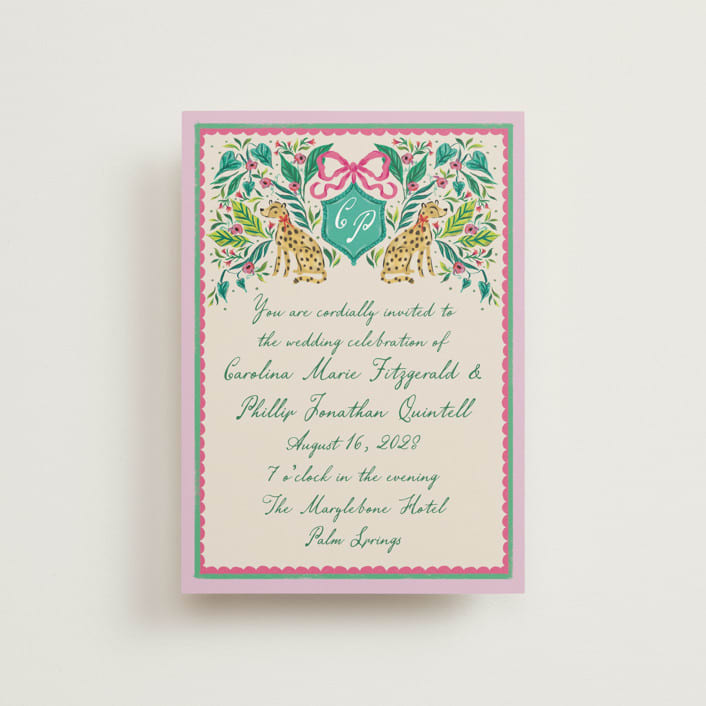 C P
You are cordially invited to
the wedding celebration of
Carolina Marie Fitzgerald &
Phillip Jonathan Quintell
August 16, 2028
7 o'clock in the evening
The Marylebone Hotel
Palm Springs